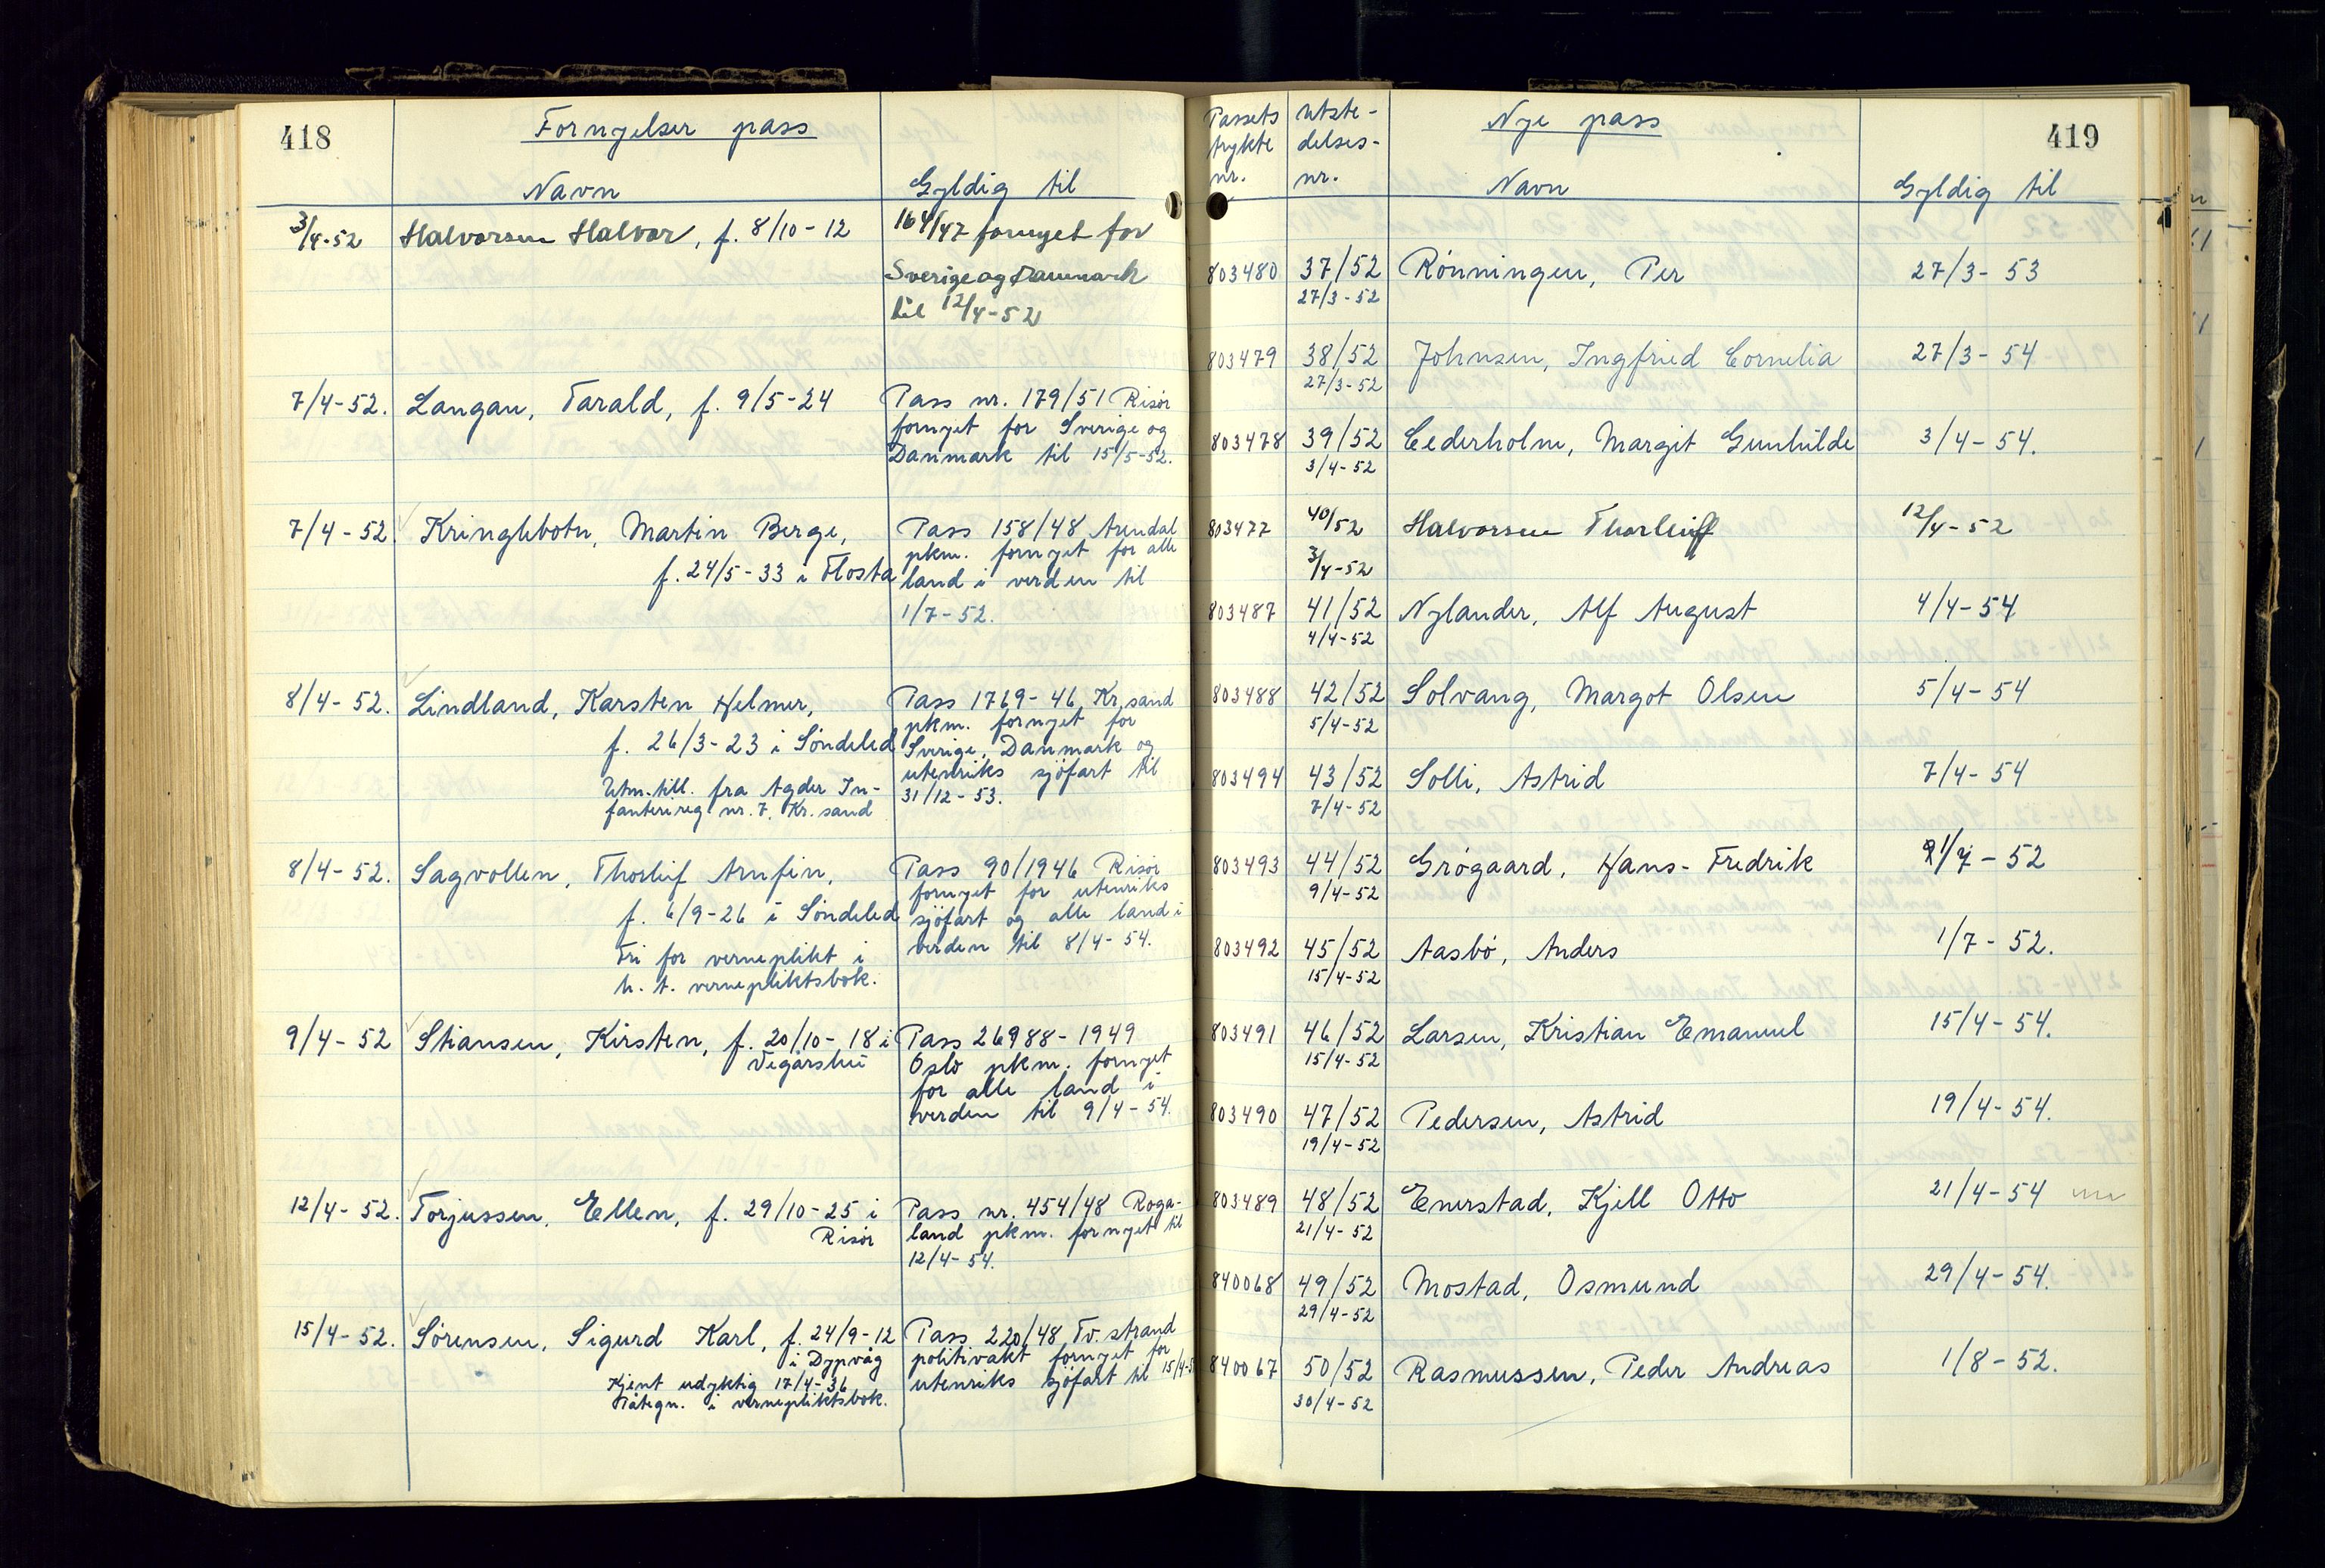 418
Fornyelser pass
Navn
Gyldig til
3/4-52 Halvorsen Halvor, f. 8/10-12
164/47 fornyet for
Sverige og Danmark
til 12/4-52
7/4-52. Langan, Tarald, f. 9/5-24
Pass nr. 179/51 Risör
fornyet for Sverige og
Danmark til 15/5-52.
7/4-52 Kringlebotn, Martin Berge,
f. 24/5-33 i Flosta
Pass 158/48 Arendal
pkm. fornyet for alle
land i verden til
1/7-52.
8/4-52. Lindland, Karsten Helmer,
f. 26/3-23 i Söndeled
Utm. till. fra Agder In-
fanterireg nr. 7. Kr. sand
Pass 1769-46 Kr. sand
pkm. fornyet for
Sverige, Danmark og
utenriks sjöfart til
31/12-53.
8/4-52. Sagvollen, Thorleif Arnfin,
f. 6/9-26 i Söndeled
Fri for verneplikt i
h. t. vernepliktsbok.
Pass 90/1946 Risör
fornyet for utenriks
sjöfart og alle land i
verden til 8/4-54.
9/4-52 Stiansen, Kirsten, f. 20/10-18 i
Vegårshei
Pass 26988-1949
Oslo pkm. fornyet
for alle land i
verden til 9/4-54.
12/4-52. Torjussen, Ellen, f. 29/10-25 i
Risör
Pass nr. 454/48 Roga-
land pkm. fornyet til
12/4-54.
15/4-52. Sörensen, Sigurd Karl, f. 24/9-12
i Dypvåg
Kjent udyktig 17/4-36
Påtegn. i vernepliktsbok.
Pass 220/48 Tv. strand
politivakt fornyet for
utenriks sjöfart til 15/4-5
419
Passets
trykte
nr.
Utste-
delses-
nr.
Nye pass
Navn
Gyldig til
803480 37/52 Rönningen, Per 27/3-53
27/3-52
803479 38/52 Johnsen, Ingfried Cornelia 27/3-54
27/3-52
803478 39/52 Cederholm, Margit Gunhilde 3/4-54.
3/4-52
803477 40/52 Halvorsen Thorleif 12/4-52
3/4-52
803487 41/52 Nylander, Alf August 4/4-54
4/4-52
803488 42/52 Solvang, Margot Olsen 5/4-54
5/4-52
803494 43/52 Solli, Astrid 7/4-54
7/4-52
803493 44/52 Grögaard, Hans-Fredrik 1/7-52
9/4-52
803492 45/52 Aasbö, Anders 1/7-52.
15/4-52
803491 46/52 Larsen, Kristian Emanuel 15/4-54.
15/4-52
803490 47/52 Pedersen, Astrid 19/4-54.
19/4-52
803489 48/52 Enerstad, Kjell Otto 21/4-54
21/4-52
840068 49/52 Mostad, Osmund 29/4-54.
29/4-52
840067 50/52 Rasmussen, Peder Andreas 1/8-52.
30/4-52